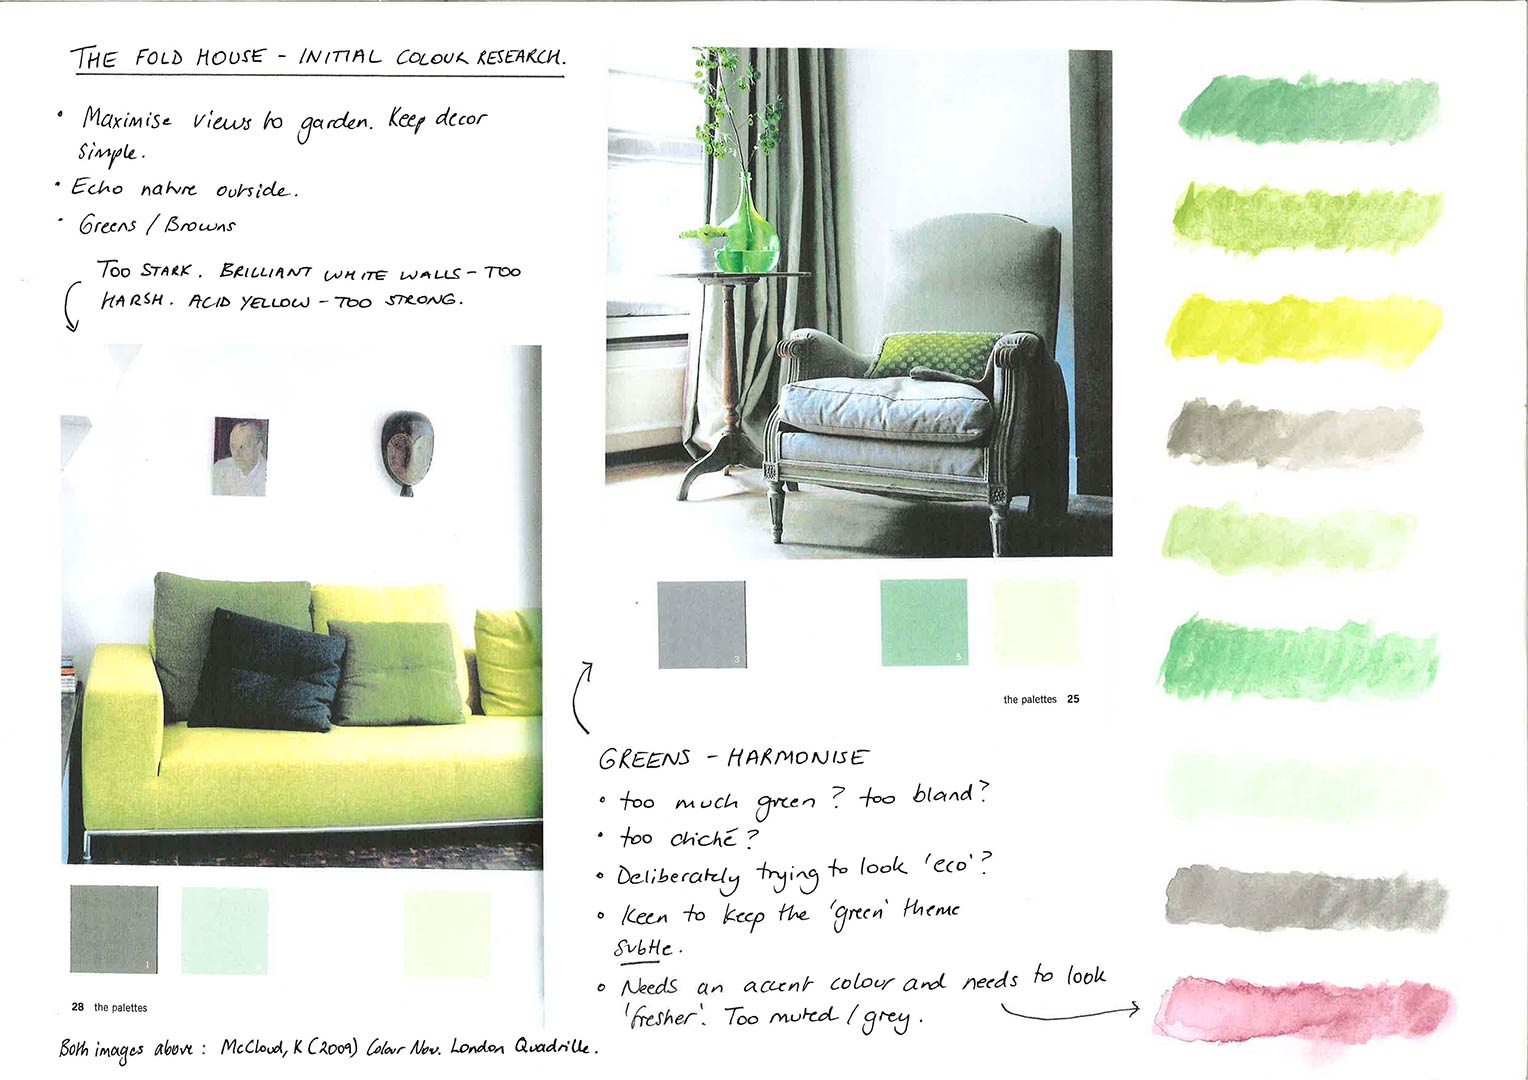 THE FOLD HOUSE - INITIAL COLOUR RESEARCH.
• Maximise views to garden. Keep decor
simple.
• Echo nature outside.
• Greens / Browns
TOO STARK. BRILLIANT WHITE WALLS - TOO
HARSH. ACID YELLOW - TOO STRONG.
1
28 the palettes
Both images above: McCloud, K (2009) Colour Now. London Quadrille.
3
5
the palettes 25
GREENS - HARMONISE
• too much green? too bland?
• too cliché?
• Deliberately trying to look 'eco'?
• Keen to keep the 'green' theme
subtle.
• Needs an accent colour and needs to look
'fresher'. Too muted / grey.